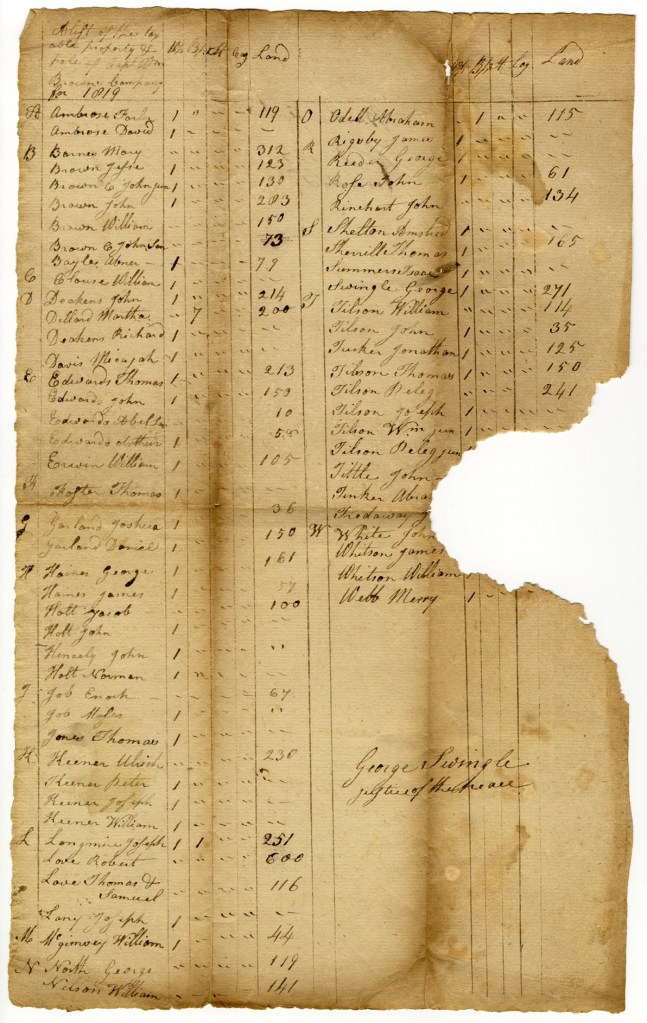 A list of the tax
able property &
pole of Capt Wm
Browns Company
for 1819
Land
A Ambrose 1 " " " 119
Ambrose David 1 " " " —
B Barnes Mary " " " " 312
Brown Jesse 1 " " " 123
Brown C John jun 1 " " " 130
Brown John 1 " " " 283
Brown William " " " 150
Brown C John Sen " " " 73
Bayles Abner 1 " " 79
C Clouse William 1 " " " "
D Deakens John 1 " " " 214
Dillard Martha " 7 " " 200
Deakens Richard 1 " " " "
Davis Micajah 1 " " "
E Edwards Thomas 1 " " 213
Edwards John 1 " " 150
Edwards Abel " " 10
Edwards Arthur " " 58
Erwin William 1 " " 105
F Foster Thomas 1 " " "
36
G Garland Joshua 1 " " 150
Garland Daniel 1 " "
H Haines George 1 " " 161
Haines James 1 " " 57
Holt Jacob " " 100
Holt John 1 " "
John 1 " " "
Holt Norman 1 " " "
J Job Enoch " " " 67
Job Myles 1 " " "
Jones Thomas 1 " "
K Keener Ulrich " " " 230
Keener Peter 1 " "
Keener Joseph 1 " "
Keener William 1 " "
L Longmire Joseph 1 1 " " 251
Love Robert " " " " 600
Love Thomas &
Samuel " " " 116
Lany Joseph 1 " " "
M McGimsey William 1 " " 44
N North George " " " 119
Nelson William " " " 141
Land
O Odell Abraham " 1 " " 115
R Rigsby James 1 " " "
Reeder George 1 " " "
Rose John " " " 61
Rinehart John " " " 134
S Shelton 1 " " "
Sherrill Thomas 1 " " 165
Summers Isaac 1 " " "
Swingle George 1 " " " 271
T Tilson William " " " 114
Tilson John " " " 35
Tucker Jonathan 1 " " " 125
Tilson Thomas 1 " " " 150
Tilson Peleg " " " 241
Tilson Joseph 1 " " "
Tilson Wm jun 1 " "
Tilson Peleg jun
Tittle John
Tinker
Tredaway
W White John
Whitson James
Whitson William 1
Webb Merry 1 "
George Swingle
justice of the peace